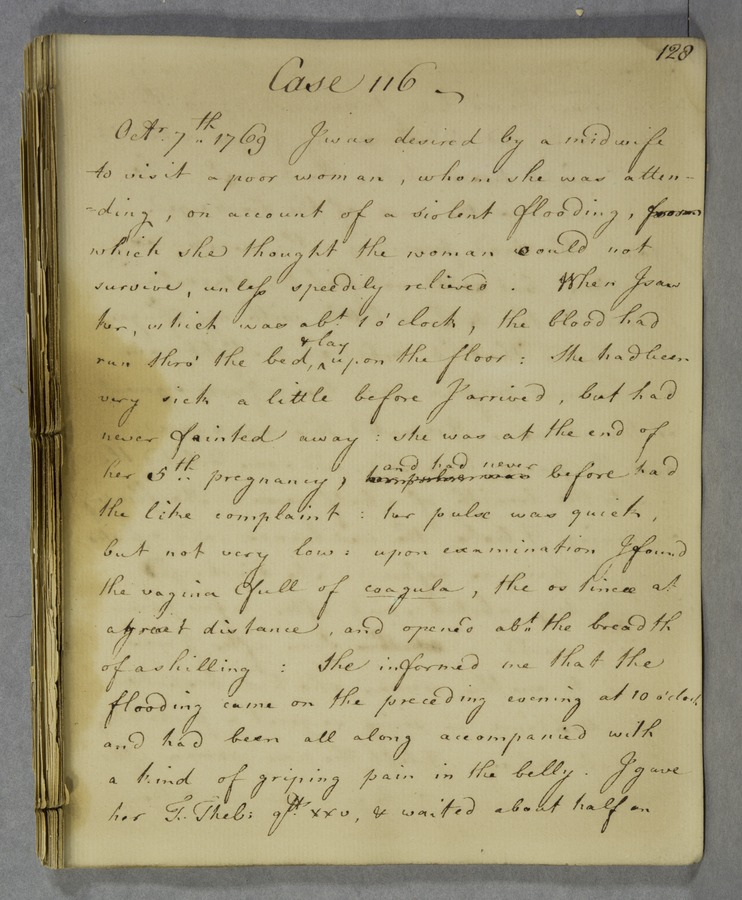 128
Case 116
Octr. 7th. 1769 I was desired by a midwife
to visit a poor woman, whom she was atten-
-ding, on account of a violent flooding, from
which she thought the woman could not
survive, unless speedily relieved. When I saw
her, which was abt. 1 o'clock, the blood had
run thro' the bed, & lay upon the floor: She had been
very sick a little before I arrived, but had
never fainted away: she was at the end of
her 5th. pregnancy, and had never before had
the like complaint: her pulse was quick,
but not very low: upon examination I found
the vagina full of coagula, the os tincæ at
a great distance, and open'd abt. the breadth
of a shilling: She informed me that the
flooding came on the preceding evening at 10 o'clock
and had been all along accompanied with
a kind of griping pain in the belly. I gave
her Tr. Theb: gtt. xxv, & waited about half an